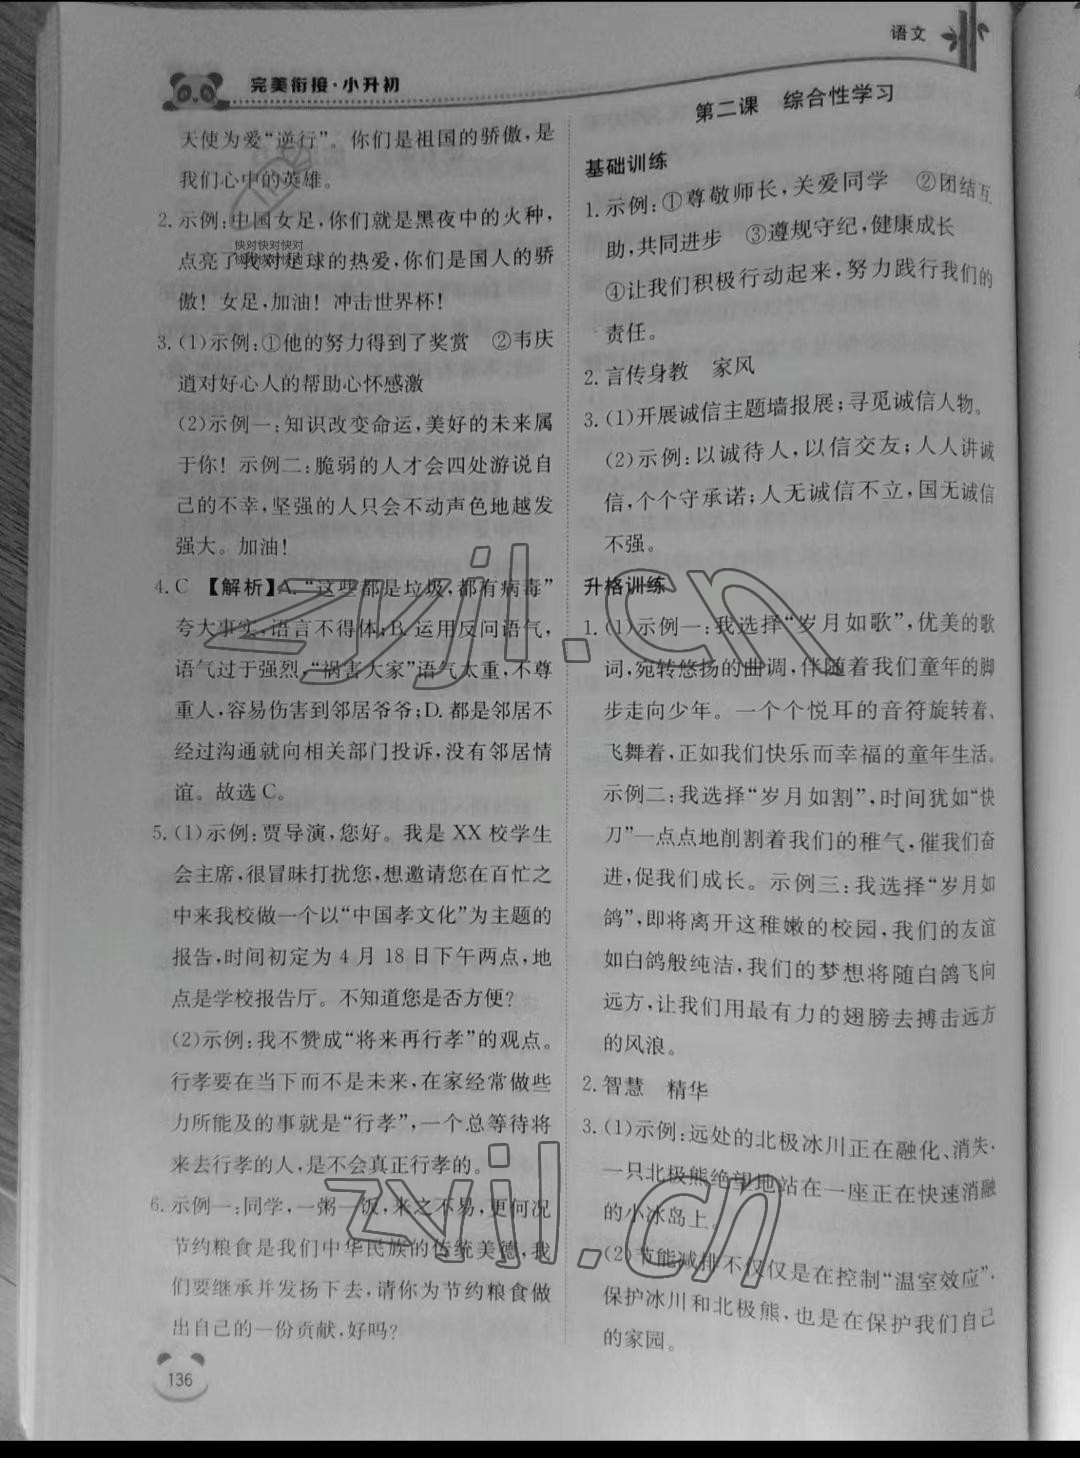 语文
完美衔接·小升初
天使为爱“逆行”。你们是祖国的骄傲,是
我们心中的英雄。
2. 示例:中国女足,你们就是黑夜中的火种,
点亮了我对足球的热爱,你们是国人的骄
傲！女足,加油！冲击世界杯！
3. (1)示例:①他的努力得到了奖赏　②韦庆
道对好心人的帮助心怀感激
(2)示例一:知识改变命运,美好的未来属
于你！示例二:脆弱的人才会四处游说自
己的不幸,坚强的人只会不动声色地越发
强大。加油！
4. C 【解析】A.“这些都是垃圾,都有病毒”
夸大事实,语言不得体;B. 运用反问语气,
语气过于强烈,“祸害大家”语气太重,不尊
重人,容易伤害到邻居爷爷;D. 都是邻居不
经过沟通就向相关部门投诉,没有邻居情
谊。故选C。
5. (1)示例:贾导演,您好。我是 XX 校学生
会主席,很冒昧打扰您,想邀请您在百忙之
中来我校做一个以“中国孝文化”为主题的
报告,时间初定为 4 月 18 日下午两点,地
点是学校报告厅。不知道您是否方便?
(2)示例:我不赞成“将来再行孝”的观点。
行孝要在当下而不是未来,在家经常做些
力所能及的事就是“行孝”,一个总等待将
来去行孝的人,是不会真正行孝的。
6. 示例一:同学,一粥一饭,来之不易,更何况
节约粮食是我们中华民族的传统美德,我
们要继承并发扬下去,请你为节约粮食做
出自己的一份贡献,好吗?
136
第二课　综合性学习
基础训练
1. 示例:①尊敬师长,关爱同学　②团结互
助,共同进步　③遵规守纪,健康成长
④让我们积极行动起来,努力践行我们的
责任。
2. 言传身教　家风
3. (1)开展诚信主题墙报展;寻觅诚信人物。
(2)示例:以诚待人,以信交友;人人讲诚
信,个个守承诺;人无诚信不立,国无诚信
不强。
升格训练
1. (1)示例一:我选择“岁月如歌”,优美的歌
词,宛转悠扬的曲调,伴随着我们童年的脚
步走向少年。一个个悦耳的音符旋转着、
飞舞着,正如我们快乐而幸福的童年生活。
示例二:我选择“岁月如割”,时间犹如“快
刀”一点点地削割着我们的稚气,催我们奋
进,促我们成长。示例三:我选择“岁月如
鸽”,即将离开这稚嫩的校园,我们的友谊
如白鸽般纯洁,我们的梦想将随白鸽飞向
远方,让我们用最有力的翅膀去搏击远方
的风浪。
2. 智慧　精华
3. (1)示例:远处的北极冰川正在融化、消失,
一只北极熊绝望地站在一座正在快速消融
的小冰岛上。
(2)节能减排不仅仅是在控制“温室效应”,
保护冰川和北极熊,也是在保护我们自己
的家园。
快对快对快对
快对快对快对
zyjl.cn
zyjl.cn